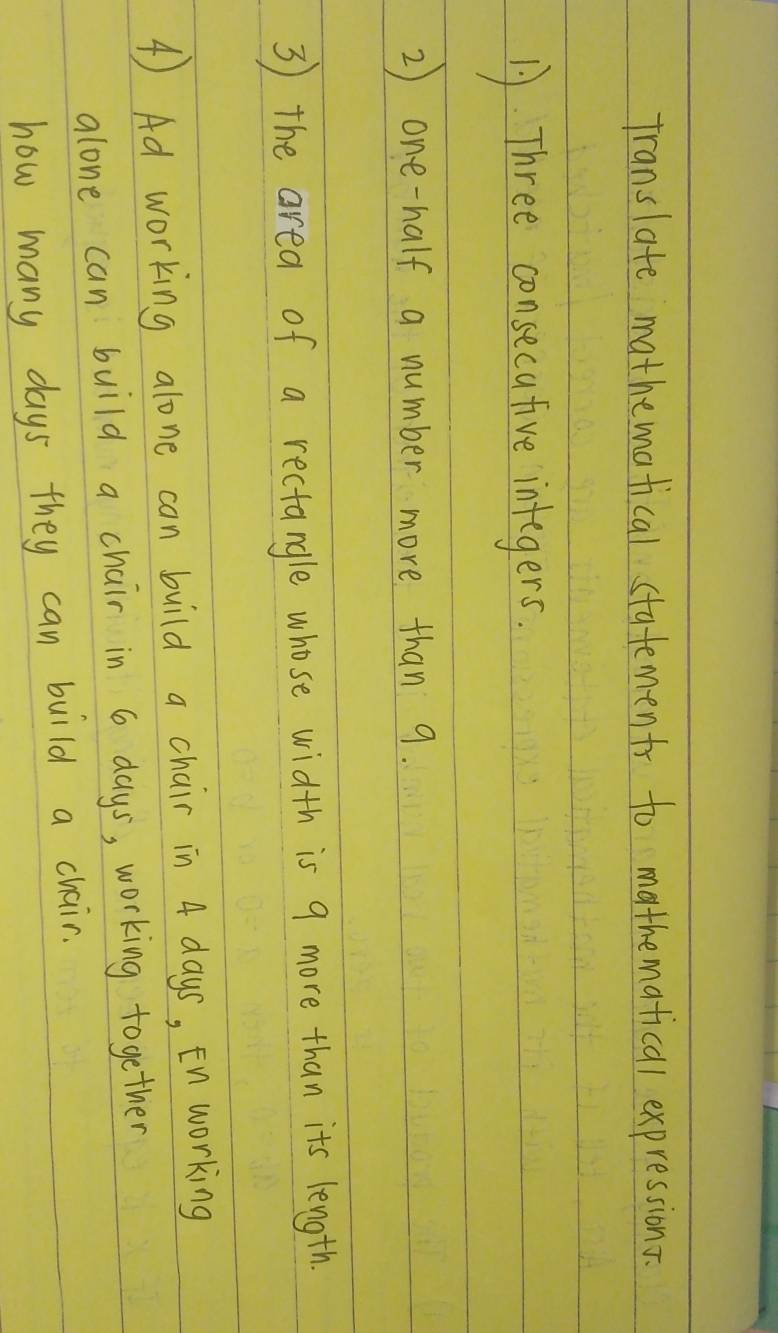 Translate mathematical statements to mathematical expressions.
1.) Three consecutive integers.
2) one-half a number more than 9.
3) the area of a rectangle whose width is 9 more than its length.
4) Ad working alone can build a chair in 4 days, En working
alone can build a chair in 6 days, working together
how many days they can build a chair.